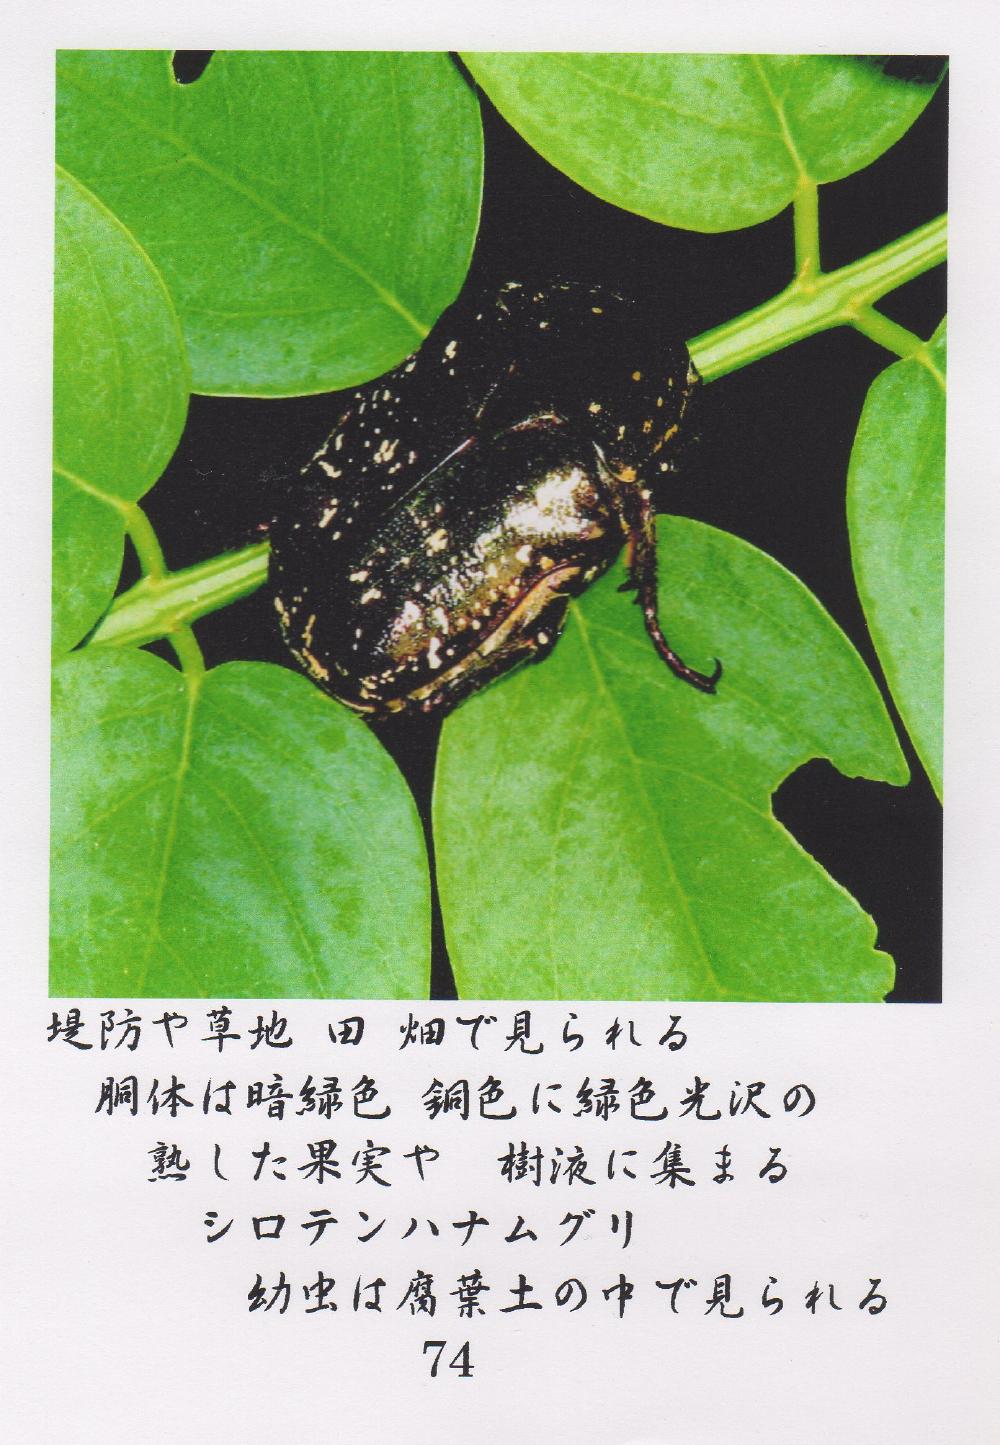 堤防や草地 田 畑で見られる
胴体は暗緑色 銅色に緑色光沢の
熟した果実や 樹液に集まる
シロテンハナムグリ
幼虫は腐葉土の中で見られる
74